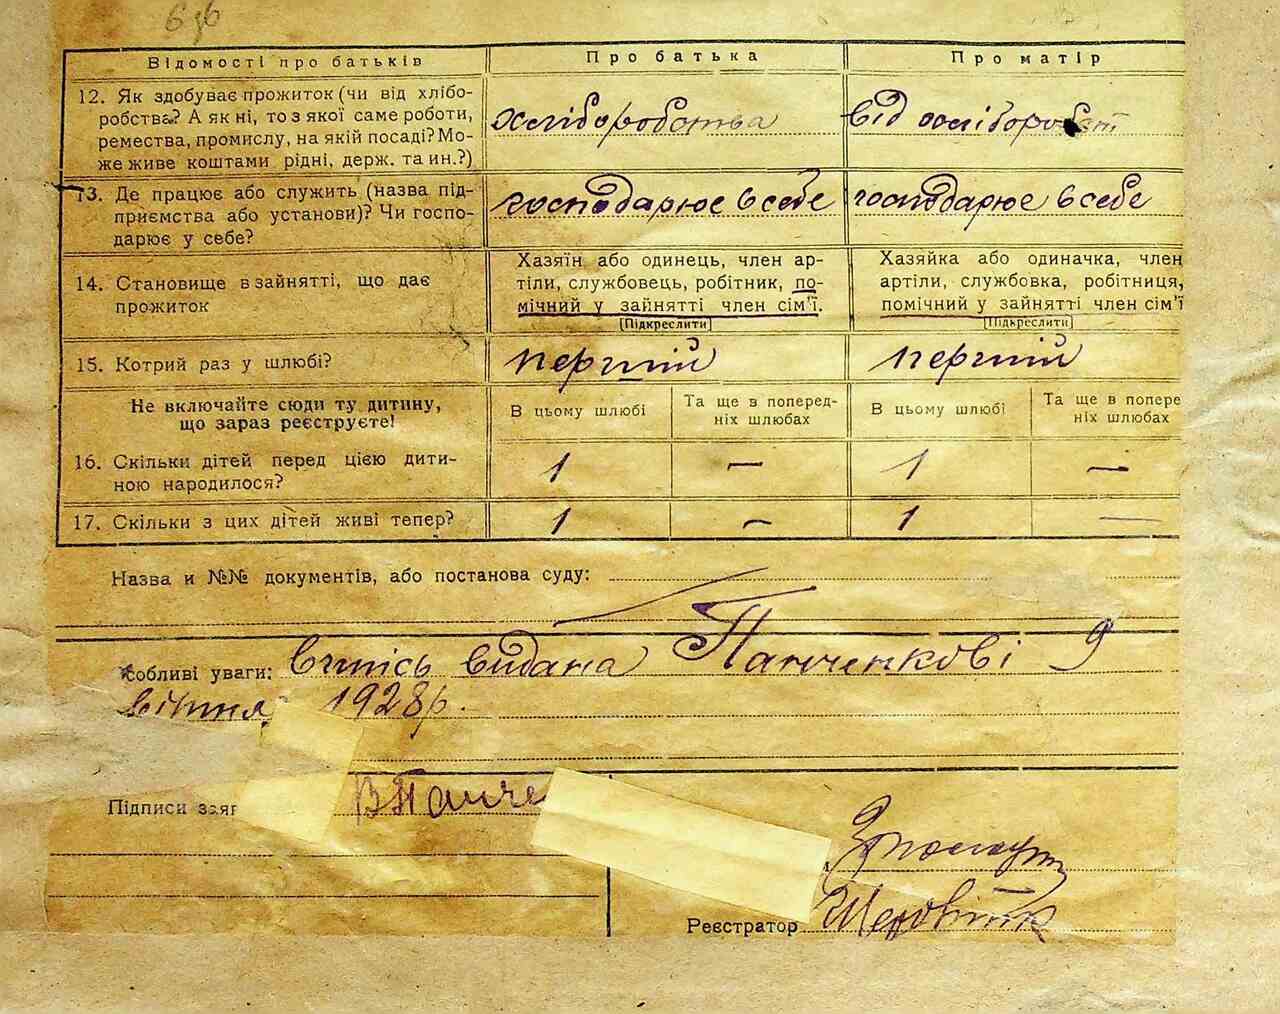 636
Відомості про батьків Про батька Про матір
12. Як здобуває прожиток (чи від хлібо- хліборобства від хлібороб
робства? А як ні, то з якої саме роботи,
ремества, промислу, на якій посаді? Мо-
же живе коштами рідні, держ. та ин.?)
13. Де працює або служить (назва під- господарює в себе господарює в себе
приємства або установи)? Чи госпо-
дарює у себе?
14. Становище в зайнятті, що дає
прожиток
Хазяїн або одинець, член ар-
тіли, службовець, робітник, по-
мічний у зайнятті член сім'ї.
(Підкреслити)
Хазяйка або одиначка, член
артіли, службовка, робітниця,
помічний у зайнятті член сім'ї
(Підкреслити)
15. Котрий раз у шлюбі? перший перший
Не включайте сюди ту дитину,
що зараз реєструєте!
В цьому шлюбі
Та ще в поперед-
ніх шлюбах
В цьому шлюбі
Та ще в попере
ніх шлюбах
16. Скільки дітей перед цією дити- 1 — 1 —
ною народилося?
17. Скільки з цих дітей живі тепер? 1 — 1 —
Назва и №№ документів, або постанова суду:
собливі уваги: випись видана Панченкові 9
квітня 1928р.
Підписи заяв В Панче
Реєстратор